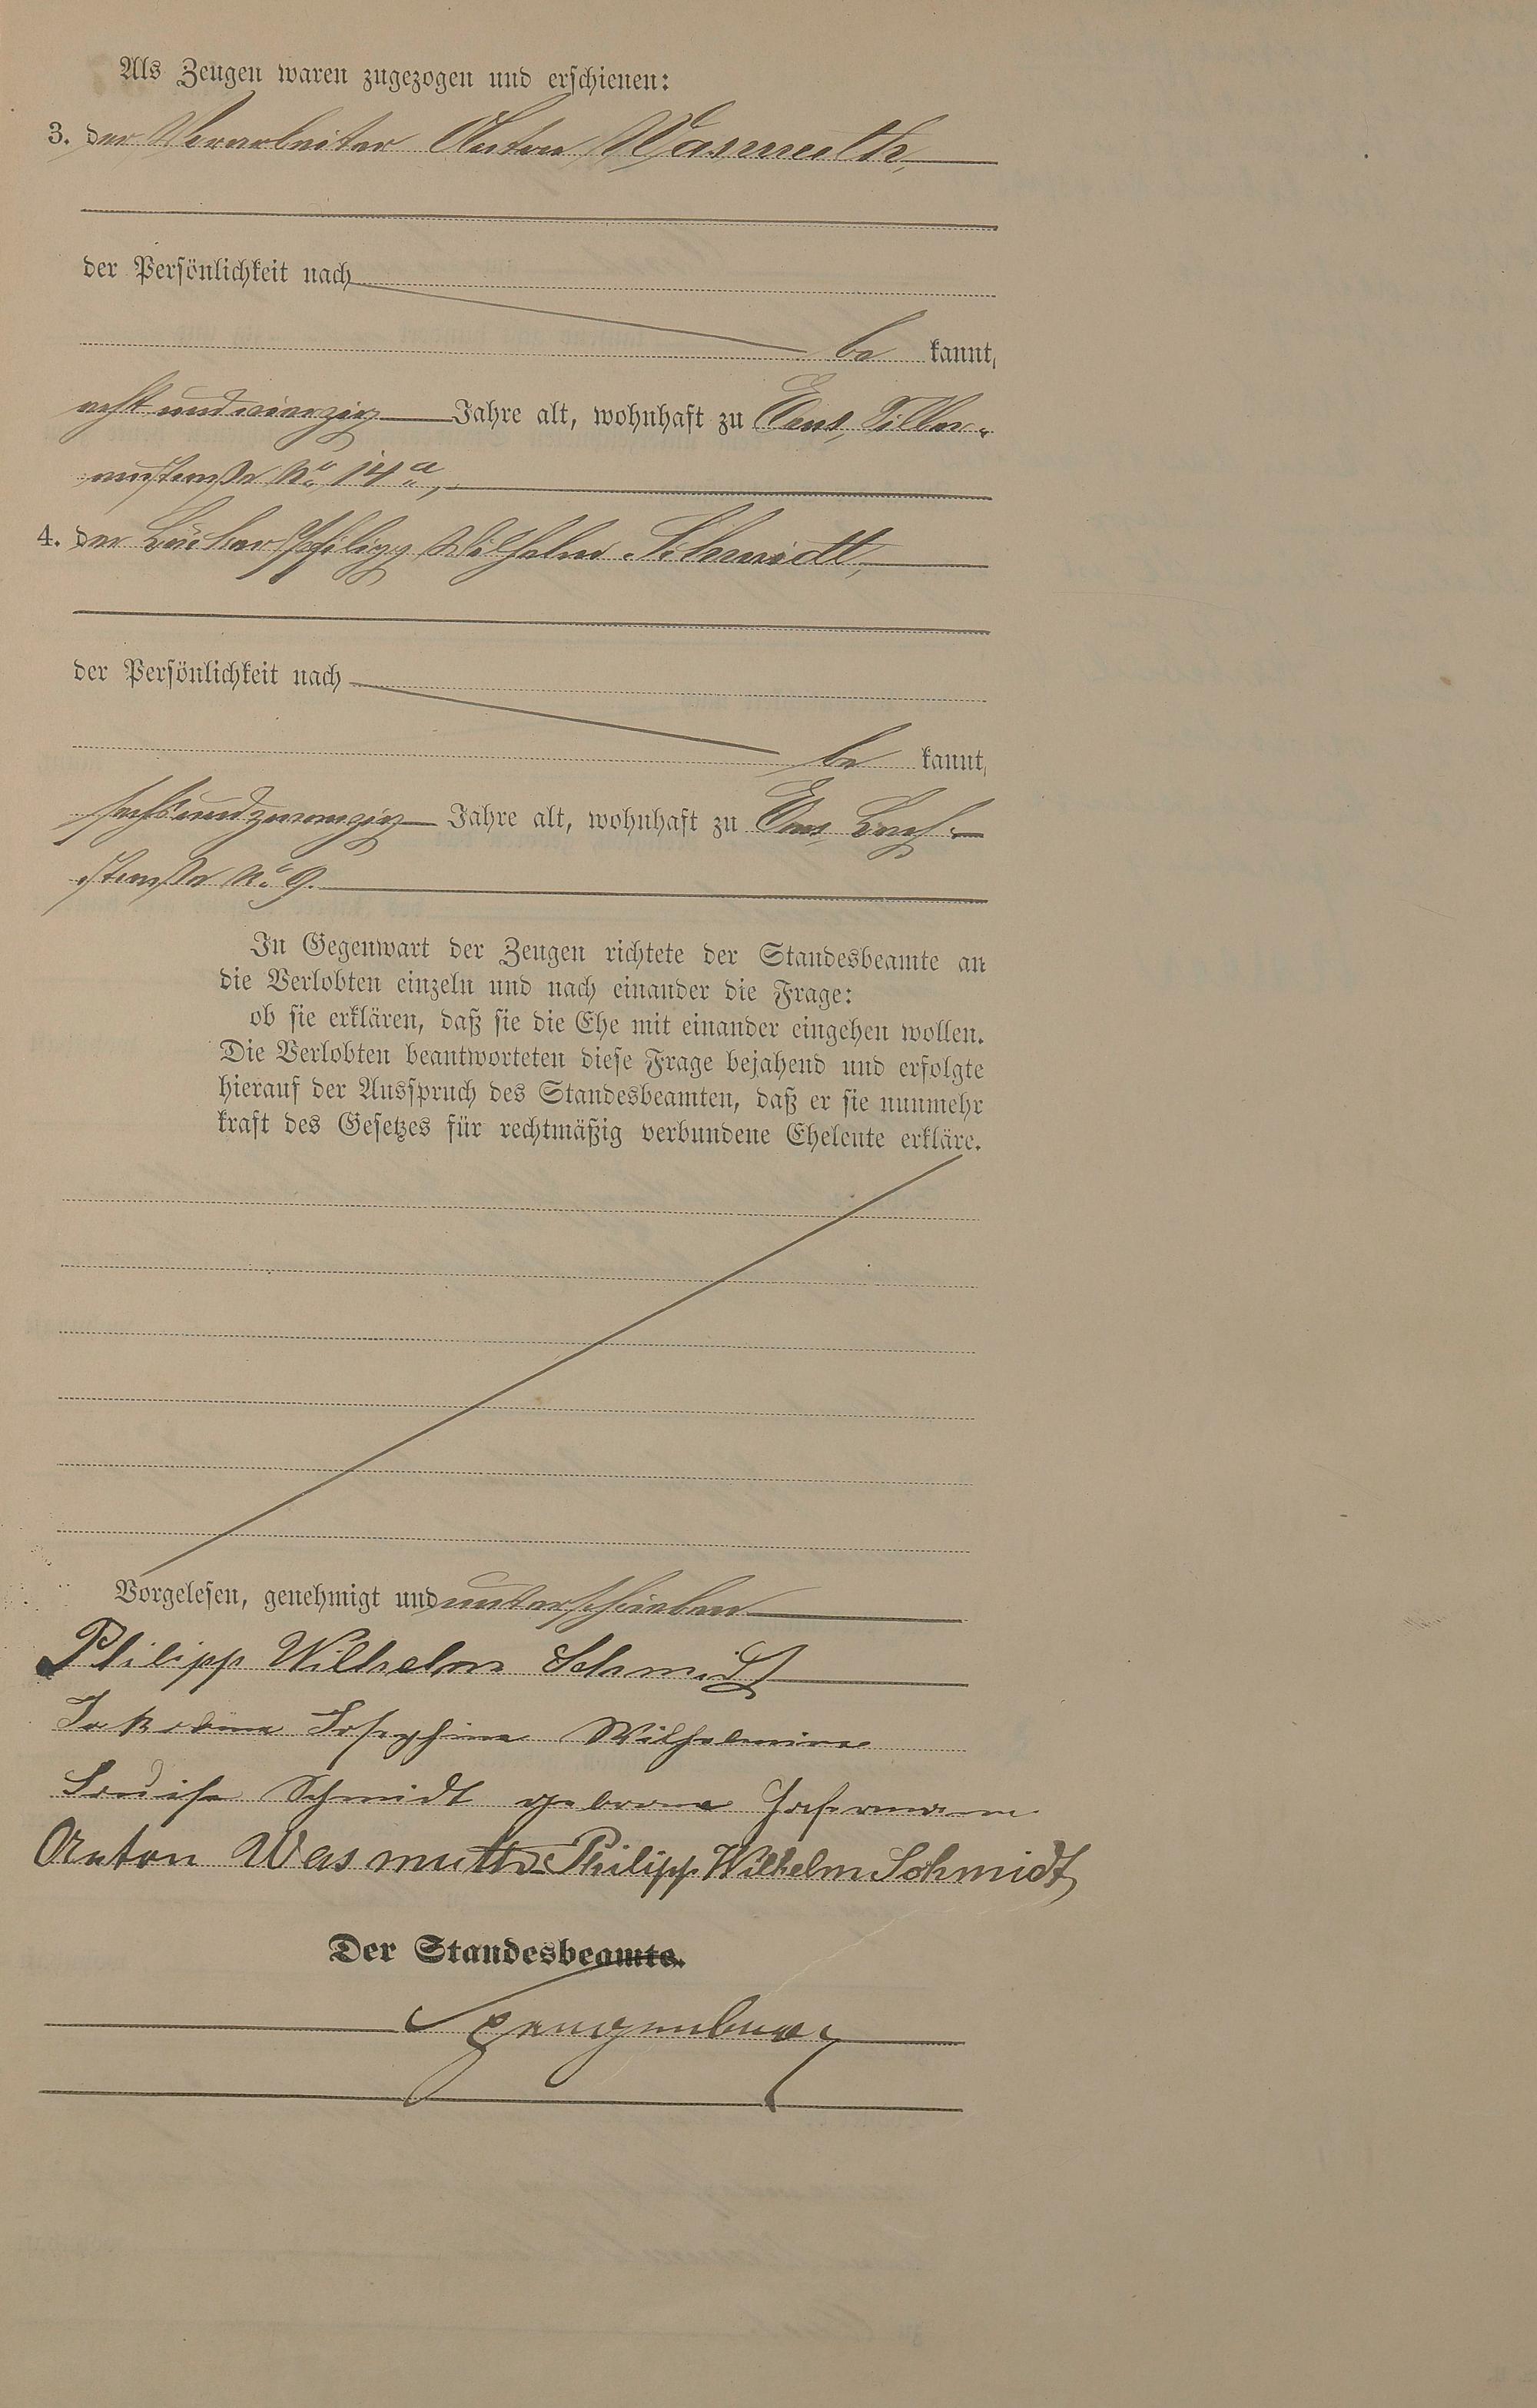 Als Zeugen waren zugezogen und erschienen:
3. der Vorarbeiter Anton Wasmuth,
der Persönlichkeit nach
be kannt,
acht und vierzig Jahre alt, wohnhaft zu Ems, Silber-
austraße No. 14a,
4. der Bäcker Philipp Wilhelm Schmidt,
der Persönlichkeit nach
be kannt,
sechsundzwanzig Jahre alt, wohnhaft zu Ems, Bach-
straße No. 9.
In Gegenwart der Zeugen richtete der Standesbeamte an
die Verlobten einzeln und nach einander die Frage:
ob sie erklären, daß sie die Ehe mit einander eingehen wollen.
Die Verlobten beantworteten diese Frage bejahend und erfolgte
hierauf der Ausspruch des Standesbeamten, daß er sie nunmehr
kraft des Gesetzes für rechtmäßig verbundene Eheleute erkläre.
Vorgelesen, genehmigt und unterschrieben
Philipp Wilhelm Schmidt
Jakobine Josephine Wilhelmine
Louise Schmidt geborene
Anton Wasmuth Philipp Wilhelm Schmidt
Der Standesbeamte.
Spangenberg